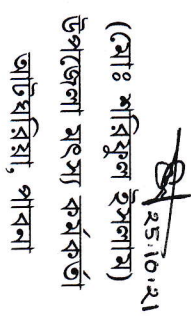 25.10.21
(মোঃ শরিফুল ইসলাম)
উপজেলা মৎস্য কর্মকর্তা
আটঘরিয়া, পাবনা